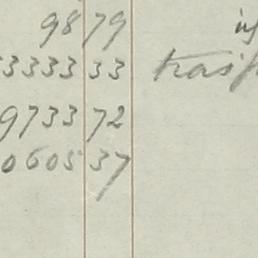 98 79
3333 33
9733 72
0605 37